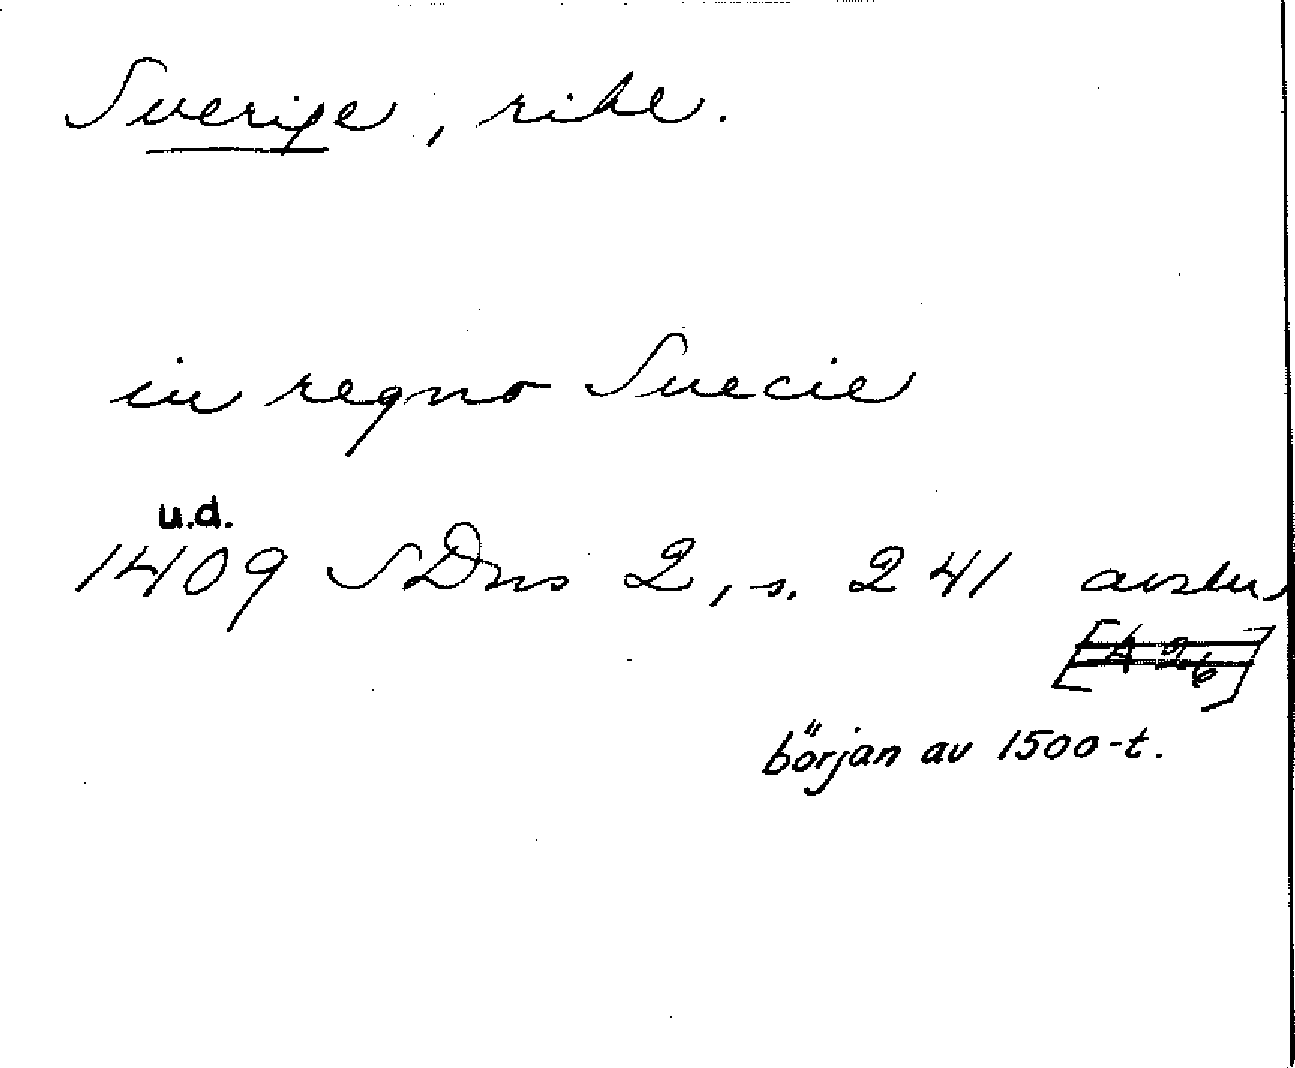 Sverige, rike.
in regno Suecie
u.d.
1409 SDns 2, s. 241 avskr
[A 26]
början av 1500-t.